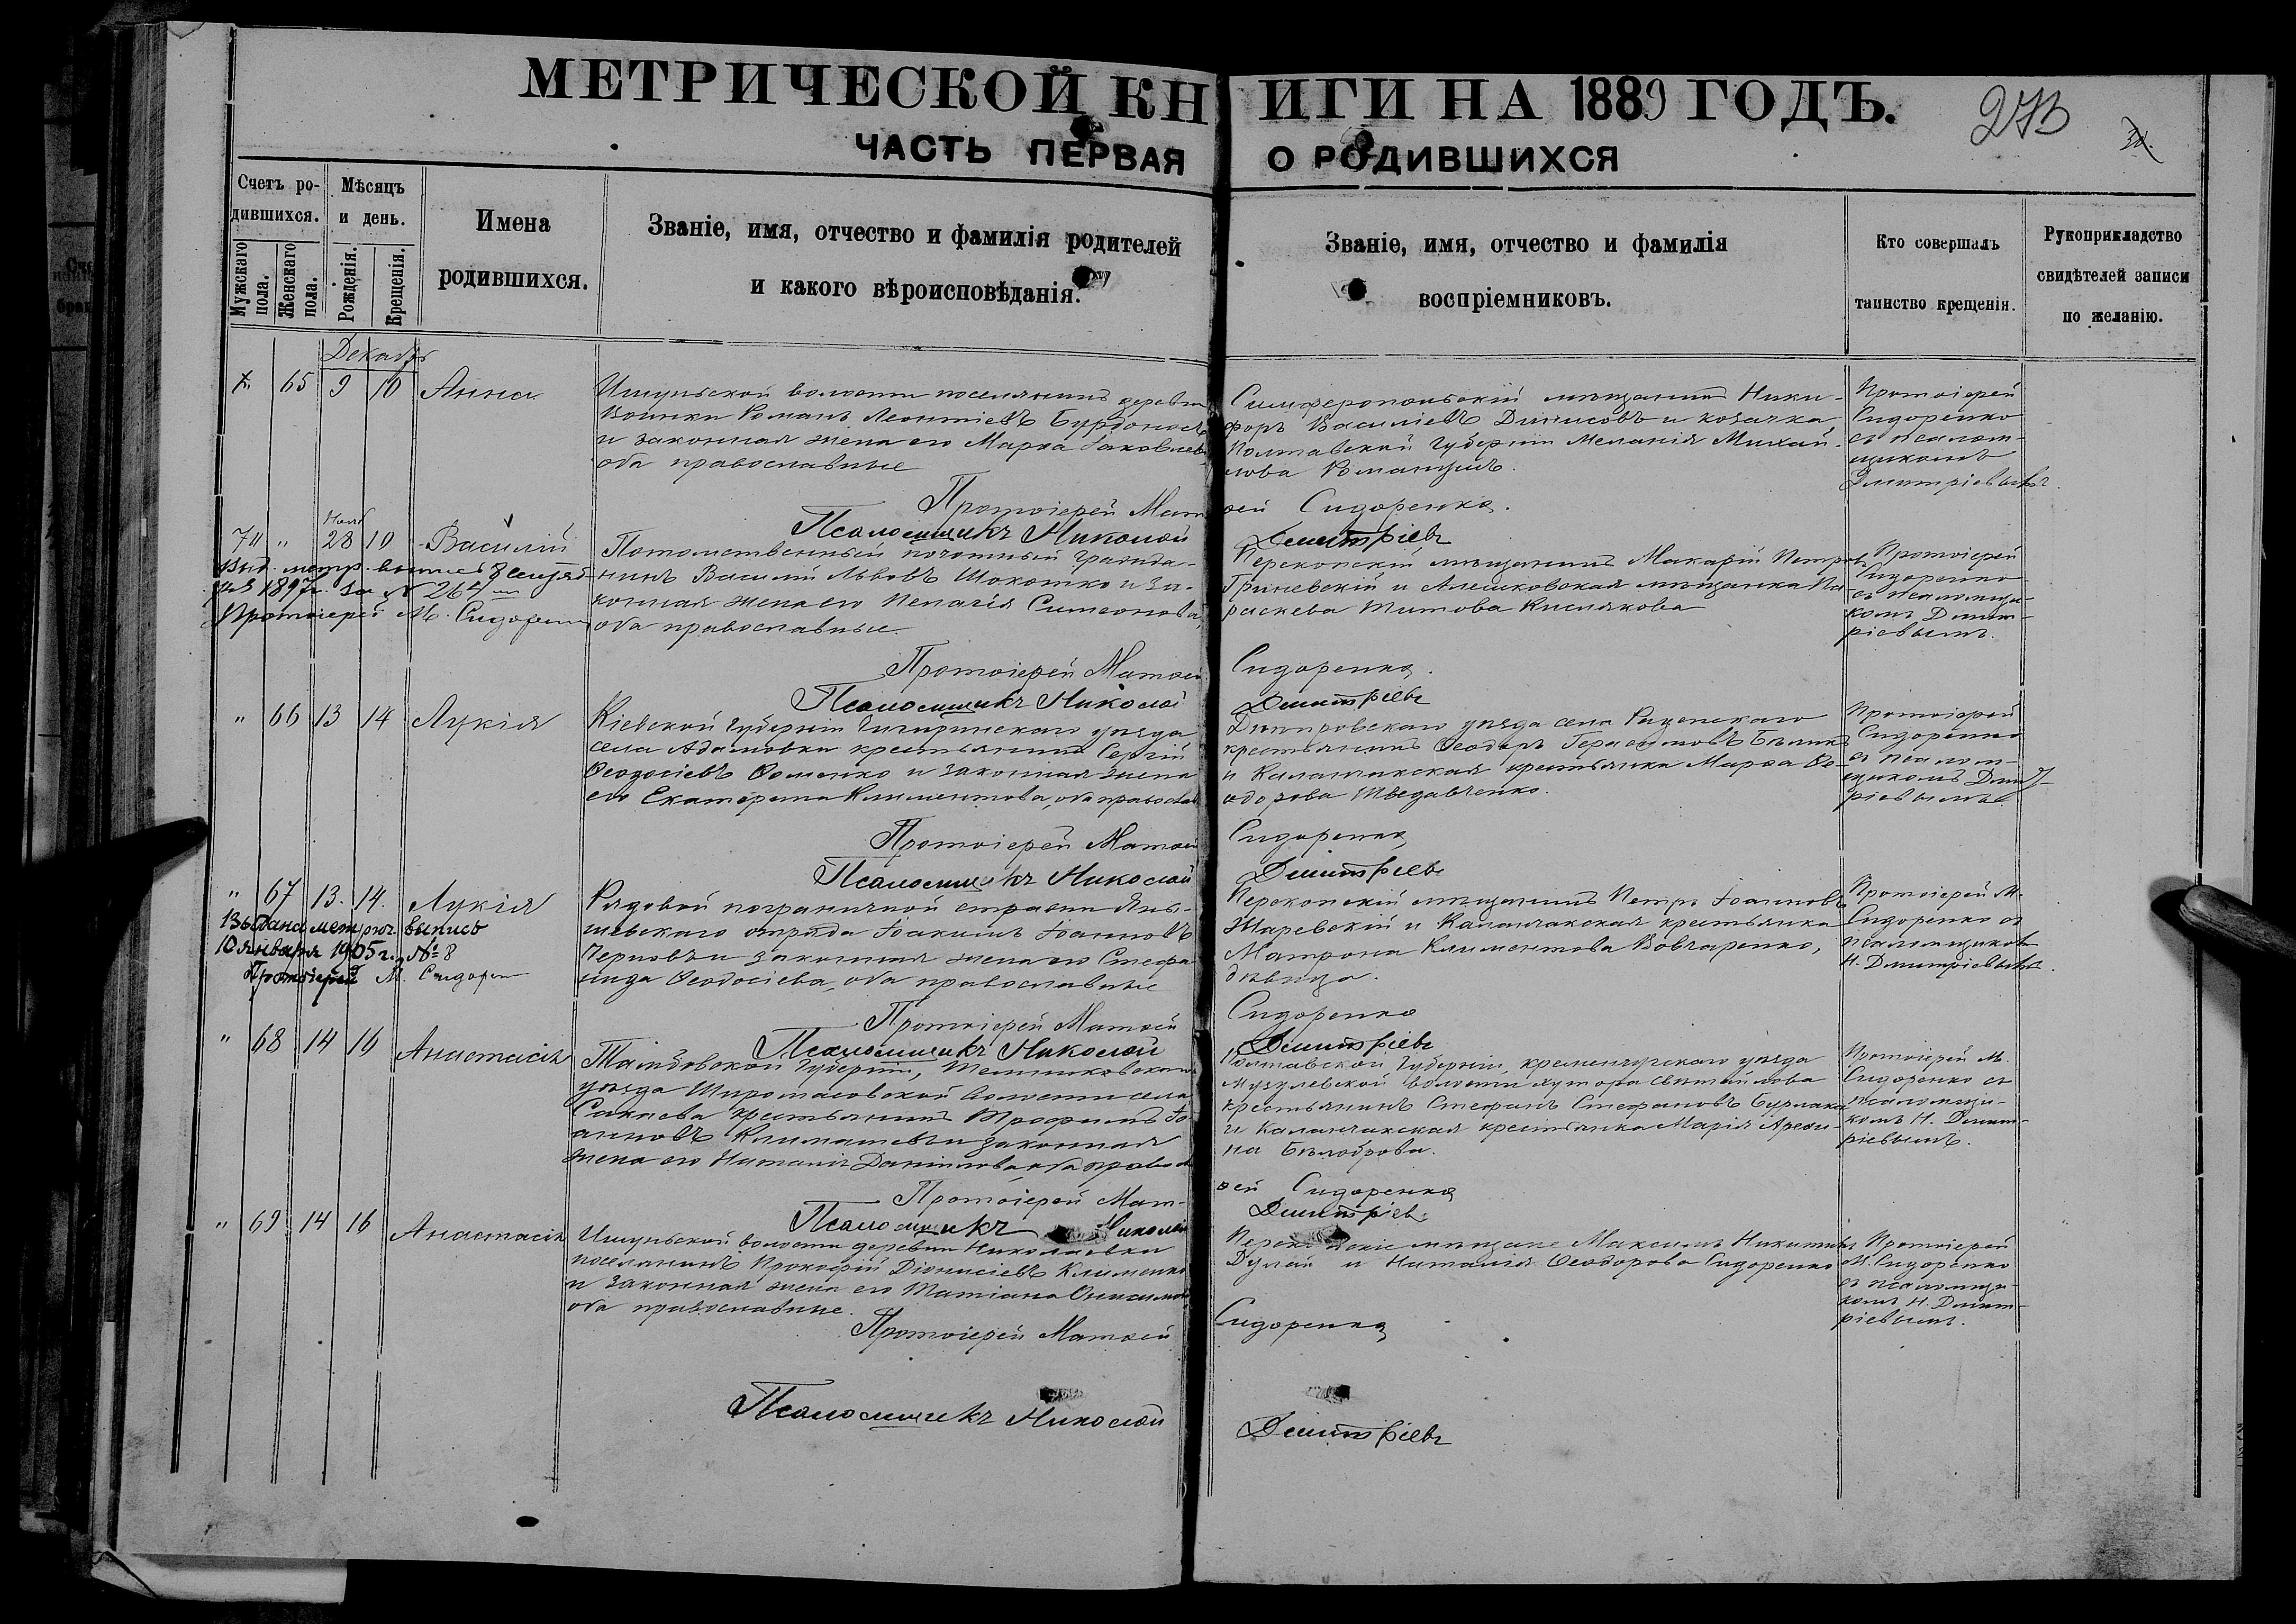 МЕТРИЧЕСКОЙ КНИГИ НА 1889 ГОДЪ.
ЧАСТЬ ПЕРВАЯ О РОДИВШИХСЯ
Счетъ родившихся.
Мужскаго пола.
Женскаго пола.
Мѣсяцъ и день.
Рожденія.
Крещенія.
Имена
родившихся.
Званіе, имя, отчество и фамилія родителей
и какого вѣроисповѣданія.
Званіе, имя, отчество и фамилія
воспріемниковъ.
Кто совершалъ
таинство крещенія.
Рукоприкладство
свидѣтелей записи
по желанію.
Декабр
65 9 10 Анна
Ишуньской волости поселянинъ деревни
Воинки Романъ Леонтіевъ
и законная жена его Марѳа Іаковлева
оба православные
Симферопольскій мѣщанинъ Ники-
форъ Василіевъ Денисовъ и козачка
Полтавской Губерніи Меланія Михай-
лова
Протоіерей
Сидоренко
съ псалом-
щикомъ
Димитріевымъ
Протоіерей Матѳей Сидоренко.
Псаломщикъ Николай Димитріевъ
Нояб
74 " 28 10 Василій
Выд. метр. выпись 8
1897 г. за № 264
Протоіерей М. Сидоренко
Потомственный почотный гражда-
нинъ Василій Львовъ и за-
конная жена его Пелагея Симеонова,
оба православные.
Перекопскій мѣщанинъ Макарій Петровъ
Гриневскій и Алешковская мѣщанка Па-
раскева Титова Кислякова
Протоіерей
Сидоренко
съ псаломщи-
комъ Димит-
ріевымъ.
Протоіерей Матѳей Сидоренко.
Псаломщикъ Николай Димитріевъ
" 66 13 14 Лукія
Кіевской Губерніи Чигиринскаго уѣзда
села Адамовки крестьянинъ Сергій
Ѳеодосіевъ Ѳоменко и законная жена
его Екатерина Климентова, оба православ
Днѣпровскаго уѣзда села
крестьянинъ Ѳеодоръ Герасимовъ
и Каланчакская крестьянка Марѳа Ѳе-
одорова
Протоіерей
Сидоренко
съ псалом-
щикомъ Димит-
ріевымъ
Протоіерей Матѳей Сидоренко
Псаломщикъ Николай Димитріевъ
" 67 13. 14. Лукія
Выдана метрич. выпись
10 января 1905 г. № 8
Протоіерей М. Сидорен
Рядовой пограничной стражи
отряда Іоакимъ Іоанновъ
Черновъ и законная жена его Стефа
нида Ѳеодосіева, оба православные
Перекопскій мѣщанинъ Петръ Іоанновъ
и Каланчакская крестьянка
Матрона Климентова Вовчаренко,
дѣвица.
Протоіерей М.
Сидоренко съ
псаломщикомъ
Н. Димитріевымъ.
Протоіерей Матѳей Сидоренко
Псаломщикъ Николай Димитріевъ
" 68 14 16 Анастасія
Тамбовской Губерніи,
уѣзда волости села
крестьянинъ Трофимъ Іо
анновъ и законная
жена его Наталія Даніилова, оба правосл
Полтавской Губерніи, кременчугскаго уѣзда
волости хутора
крестьянинъ Стефанъ Стефановъ Бурлака
и Каланчакская крестьянка Марія
на Бѣлоброва.
Протоіерей М.
Сидоренко съ
псаломщи-
комъ Н. Димит-
ріевымъ.
Протоіерей Матѳей Сидоренко
Псаломщикъ Николай Димитріевъ
" 69 14 16 Анастасія
Ишуньской волости деревни Николаевки
поселянинъ Прокофій Діонисіевъ Клименко
и законная жена его Татіана Онисимова
оба православные.
мѣщане Максимъ Никитинъ
и Наталія Ѳеодорова Сидоренко
Протоіерей
М. Сидоренко
съ псаломщи-
комъ Н. Димит-
ріевымъ.
Протоіерей Матѳей Сидоренко
Псаломщикъ Николай Димитріевъ